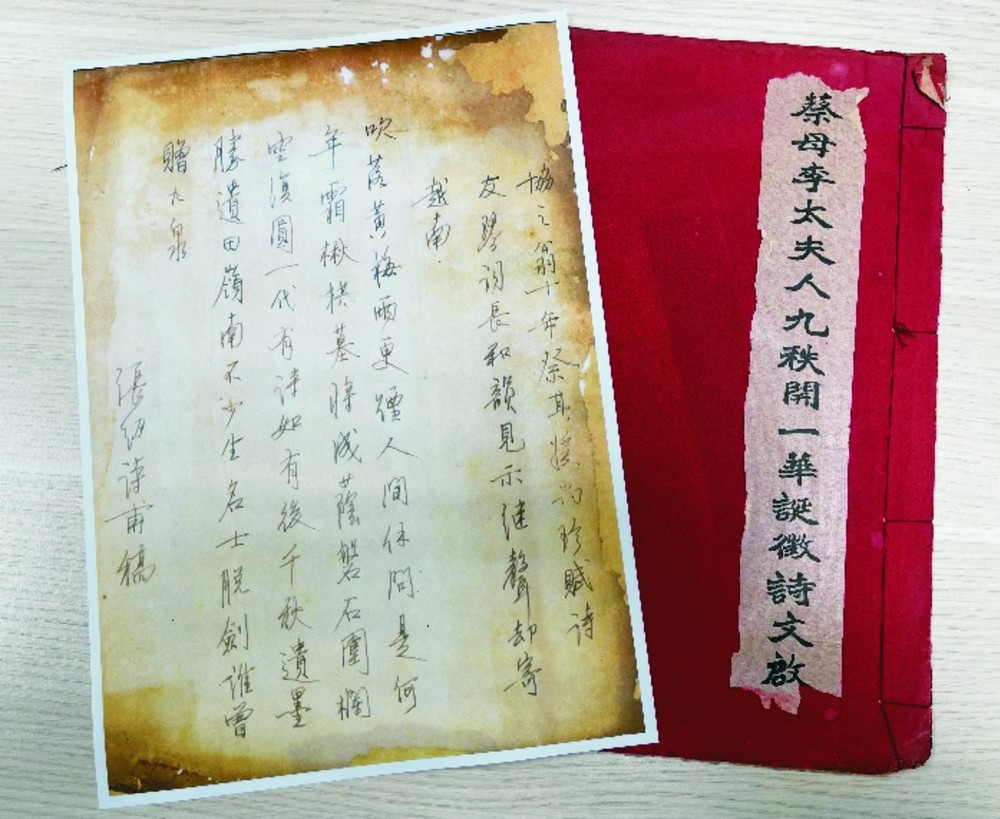 蔡母李太夫人九秩開一華誕徵詩文啟
協之翁十年祭其媛筠珍賦詩
友琴詞長和韻見示继聲却寄
越南
吹落黃梅雨更煙人間休問是何
年霜楸拱墓將成蔭磐石圍欄
空復圓一代有詩如有後千秋遺墨
勝遺田嶺南不少生名士脱劍誰曾
贈九泉
張紉詩甫稿